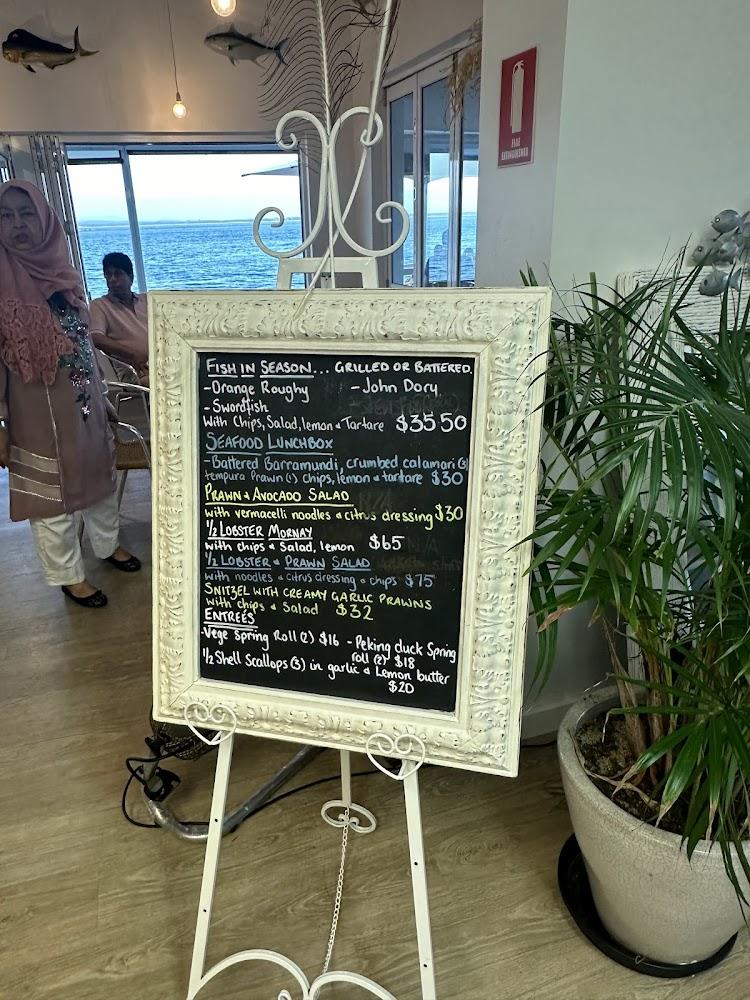 FIRE
EXTINGUISHER
FISH IN SEASON... GRILLED OR BATTERED.
-Orange Roughy - John Dory
- Swordfish
With Chips, Salad, lemon & Tartare $35 50
SEAFOOD LUNCHBOX
- Battered Barramundi, crumbed calamari (3)
tempura Prawn (1) chips, lemon & tartare $30
PRAWN & AVOCADO SALAD
with vermacelli noodles & citrus dressing $30
1/2 LOBSTER MORNAY
with chips & Salad, lemon $65
1/2 LOBSTER & PRAWN SALAD
with noodles & citrus dressing & chips $75
SNITZEL WITH CREAMY GARLIC PRAWNS
with chips & Salad $32
ENTREÉS
-Vege Spring Roll (2) $16 - Peking duck Spring
roll (2) $18
1/2 Shell Scallops (3) in garlic & Lemon butter
$20